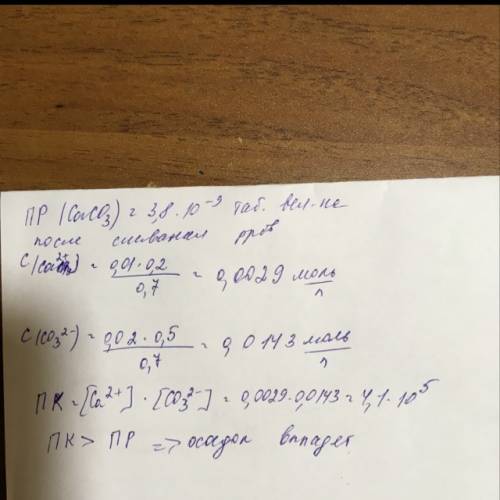 ПР (CaCO₃) = 3,8 · 10⁻⁹ таб. вел-на
после сливания р-ров
C(Ca²⁺) = 0,01 · 0,2 / 0,7 = 0,0029 моль/л
C(CO₃²⁻) = 0,02 · 0,5 / 0,7 = 0,0143 моль/л
ПК = [Ca²⁺] · [CO₃²⁻] = 0,0029 · 0,0143 = 4,1 · 10⁵
ПК > ПР => осадок выпадет